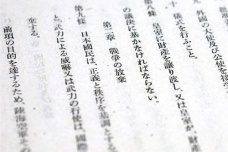 外國の大使及び公使を接
十 儀式を行ふこと。
皇室に財産を譲り渡し、又は皇室が、財産
の議決に基かなければならない。
第二章 戰爭の放棄
第九條 日本國民は、正義と秩序を基調とする
と、武力による威嚇又は武力の行使は、國際
棄する。
前項の目的を達するため、陸海空軍そ